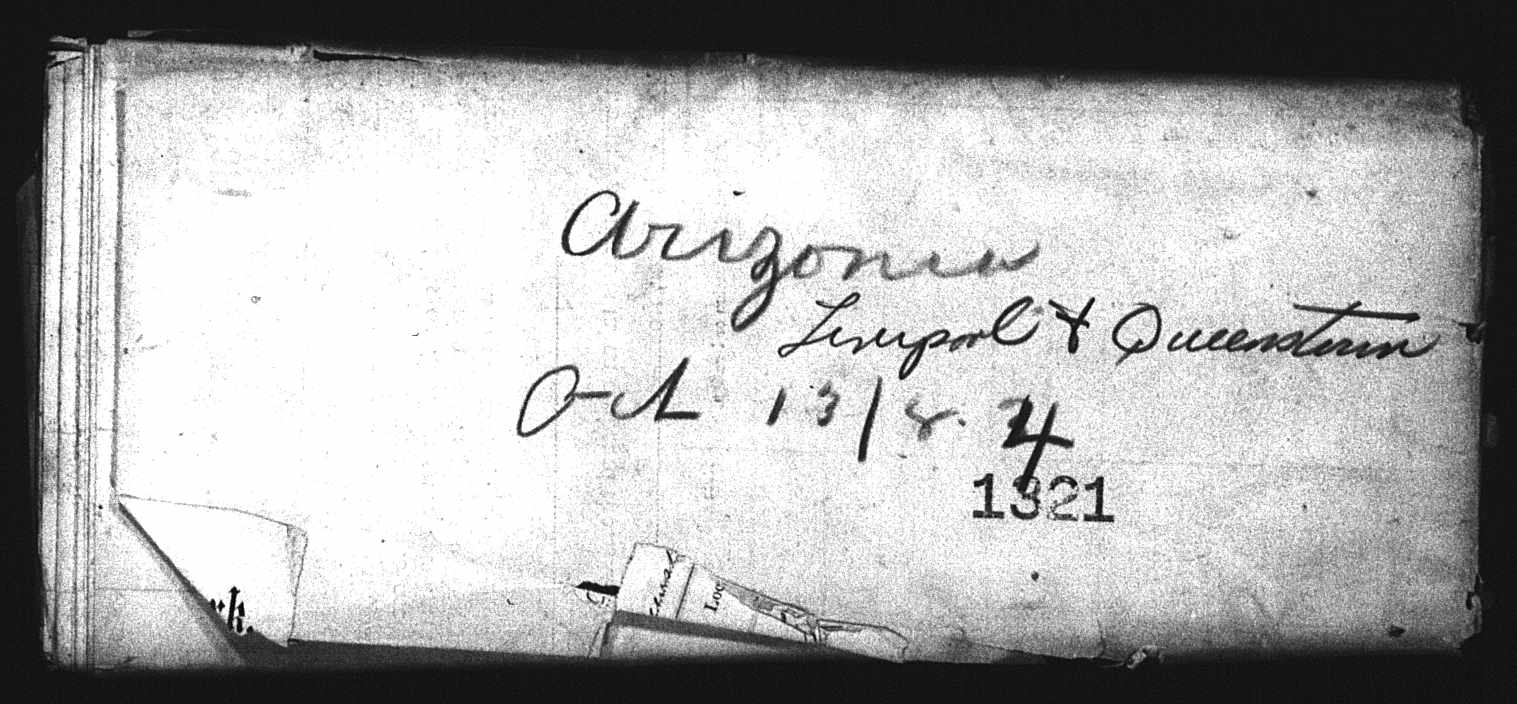 Arizona
Liverpool & Queenstown
Oct 13/8. 4
1321
rk.
Loc